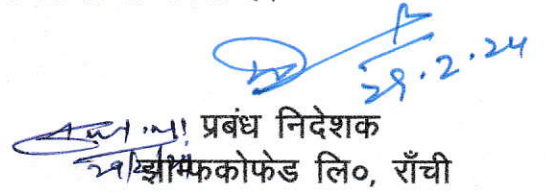 29.2.24
प्रबंध निदेशक
झाम्फकोफेड लि०, राँची